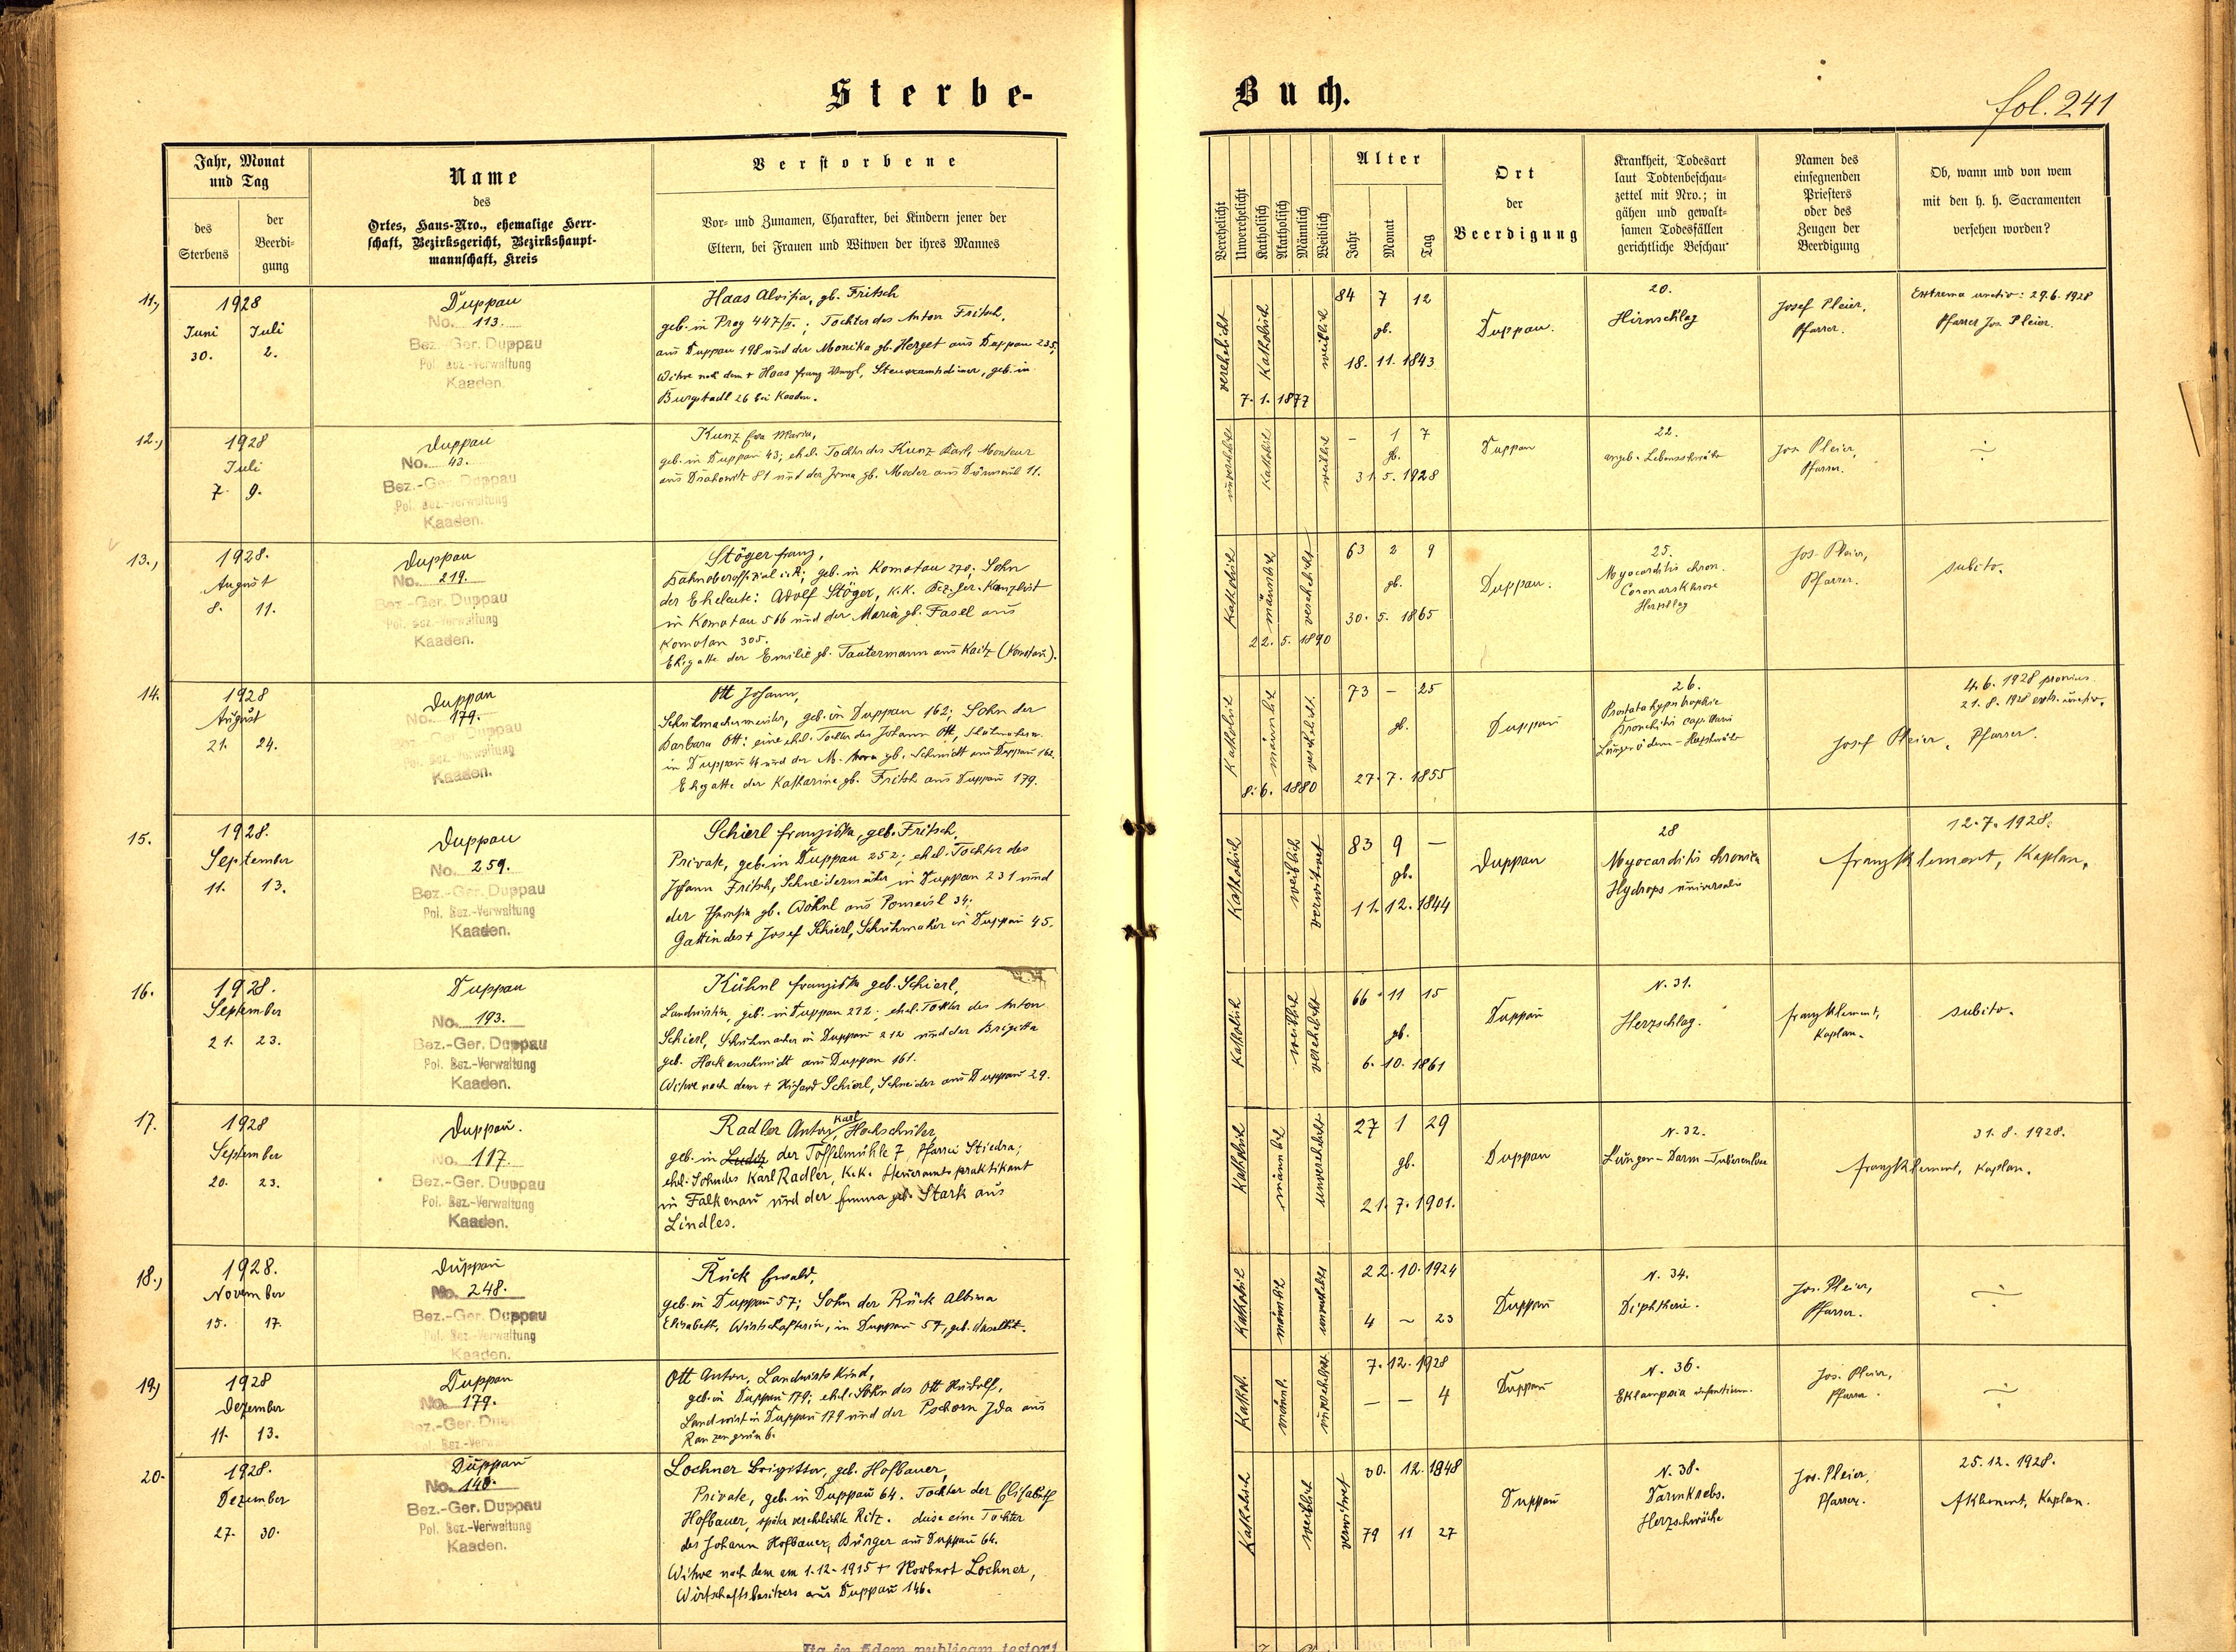 Sterbe-
Buch.
fol. 241
Jahr, Monat
und Tag
des
Sterbens
der
Beerdi-
gung
Name
des
Ortes, Haus-Nro., ehemalige Herr-
schaft, Bezirksgericht, Bezirkshaupt-
mannschaft, Kreis
Verstorbene
Vor- und Zunamen, Charakter, bei Kindern jener der
Eltern, bei Frauen und Witwen der ihres Mannes
Verehelicht
Unverehelicht
Katholisch
Akatholisch
Männlich
Weiblich
Alter
Jahr
Monat
Tag
Ort
der
Beerdigung
Krankheit, Todesart
laut Todtenbeschau-
zettel mit Nro.; in
gähen und gewalt-
samen Todesfällen
gerichtliche Beschau
Namen des
einsegnenden
Priesters
oder des
Zeugen der
Beerdigung
Ob, wann und von wem
mit den h. h. Sacramenten
versehen worden?
11.,
1928
Juni Juli
30. 2.
Duppau
No. 113.
Bez.-Ger. Duppau
Pol. Bez.-Verwaltung
Kaaden.
Haas Aloisia, gb. Fritsch
geb. in Prag 447/II.; Tochter des Anton Fritsch,
aus Duppau 198 und der Monika gb. Herget aus Duppau 235;
Witwe nach dem + Haas Franz, Steueramtsdiener, geb. in
Burgstadl 26 bei Kaaden.
verehelicht
Katholisch
weiblich
7. 1. 1877
84 7 12
gb.
18. 11. 1843
Duppau.
20.
Hirnschlag
Josef Pleier,
Pfarrer.
Extrema unctio: 29. 6. 1928
Pfarrer Jos. Pleier.
12.,
1928
Juli
7. 9.
Duppau
No. 43.
Bez.-Ger. Duppau
Pol. Bez.-Verwaltung
Kaaden.
Kunz Eva Maria,
geb. in Duppau 43; ehel. Tochter des Kunz Karl, Monteur
aus 81 und der Irma gb. Moder aus 11.
unverehelicht
Katholisch
weiblich
- 1 7
gb.
31. 5. 1928
Duppau
22.
angeb. Lebensschwäche
Jos. Pleier,
Pfarrer.
÷
13.,
1928.
August
8. 11.
Duppau
No. 219.
Bez.-Ger. Duppau
Pol. Bez.-Verwaltung
Kaaden.
Stöger Franz,
Bahnoberoffizial i. R; geb. in Komotau 270; Sohn
der Eheleute: Adolf Stöger, K.K. Bez. Ger. Kanzlist
in Komotau 566 und der Maria gb. Fasel aus
Komotau 305.
Ehegatte der Emilie gb. Tautermann aus Kaitz (Komotau).
Katholisch
männlich
verehelicht
22. 5. 1890
63 2 9
gb.
30. 5. 1865
Duppau.
25.
Myocarditis chron.
Herzschlag
Jos. Pleier,
Pfarrer.
subito.
14.
1928
August
21. 24.
Duppau
No. 179.
Bez.-Ger. Duppau
Pol. Bez.-Verwaltung
Kaaden.
Ott Johann,
Schuhmachermeister, geb. in Duppau 162; Sohn der
Barbara Ott: eine ehel. Tochter des Johann Ott,
in Duppau und der M. gb. Schmidt aus Duppau 162.
Ehegatte der Katharina gb. Fritsch aus Duppau 179.
Katholisch
männlich
verehelicht.
8. 6. 1880
73 - 25
gb.
27. 7. 1855
Duppau
26.
Prostatahypertrophie
Bronchitis capillaris
Lungenödem - Herzschwäche
4. 6. 1928
21. 8. 1928 extr. unctio.
Josef Pleier, Pfarrer.
15.
1928.
September
11. 13.
Duppau
No. 259.
Bez.-Ger. Duppau
Pol. Bez.-Verwaltung
Kaaden.
Schierl Franziska, geb. Fritsch,
Private, geb. in Duppau 252; ehel. Tochter des
Johann Fritsch, Schneidermeister in Duppau 231 und
der gb. Wöhnl aus Pomeisl 34;
Gattin des + Josef Schierl, Schuhmacher in Duppau 45.
Katholisch
weiblich
verwitwet
83 9 -
gb.
11. 12. 1844
Duppau
28
Myocarditis chronica
Hydrops universalis
12. 7. 1928.
Franz Klement, Kaplan.
16.
1928.
September
21. 23.
Duppau
No. 193.
Bez.-Ger. Duppau
Pol. Bez.-Verwaltung
Kaaden.
Kühnl Franziska geb. Schierl,
Landwirtin, geb. in Duppau 212; ehel. Tochter des Anton
Schierl, Schuhmacher in Duppau 212 und der Brigitta
geb. Hockenschmidt aus Duppau 161.
Witwe nach dem + Richard Schierl, Schneider aus Duppau 29.
Katholisch
weiblich
verehelicht
66 11 15
gb.
6. 10. 1861
Duppau
N. 31.
Herzschlag.
Franz Klement,
Kaplan.
subito.
17.
1928
September
20. 23.
Duppau.
No. 117.
Bez.-Ger. Duppau
Pol. Bez.-Verwaltung
Kaaden.
Karl
Radler Anton, Hochschüler,
geb. in Luditz der Töffelmühle 7, Pfarrei Stiedra;
ehel. Sohn des Karl Radler, K.K. Steueramtspraktikant
in Falkenau und der Emma geb. Stark aus
Lindles.
Katholisch
männlich
unverehelicht
27 1 29
gb.
21. 7. 1901.
Duppau
N. 32.
Lungen-Darm-Tuberculose
31. 8. 1928.
Franz Klement, Kaplan.
18.,
1928.
November
15. 17.
Duppau
No. 248.
Bez.-Ger. Duppau
Pol. Bez.-Verwaltung
Kaaden.
Rück Ewald,
geb. in Duppau 57; Sohn der Rück Albina
Elisabeth, Wirtschafterin, in Duppau 57, geb. daselbst.
Katholisch
männlich
unverehelicht
22. 10. 1924
4 ~ 23
Duppau
N. 34.
Diphtherie.
Jos. Pleier,
Pfarrer.
÷
19.,
1928
Dezember
11. 13.
Duppau
No. 179.
Bez.-Ger. Duppau
Pol. Bez.-Verwaltung
Ott Anton, Landwirts Kind,
geb. in Duppau 179; ehel. Sohn des Ott Rudolf,
Landwirt in Duppau 179 und der Pschorn Ida aus
Ranzengrün 6.
Kathol.
männl.
unverehelicht
7. 12. 1928
- - 4
Duppau
N. 36.
Eklampsia infantium.
Jos. Pleier,
Pfarrer.
÷
20.
1928.
Dezember
27. 30.
Duppau
No. 146.
Bez.-Ger. Duppau
Pol. Bez.-Verwaltung
Kaaden.
Lochner Brigitta, geb. Hofbauer,
Private, geb. in Duppau 64. Tochter der Elisabeth
Hofbauer, später verehelichte Ritz. diese eine Tochter
des Johann Hofbauer, Bürger aus Duppau 64.
Witwe nach dem am 1. 12. 1915 + Norbert Lochner,
Wirtschaftsbesitzers aus Duppau 146.
Katholisch
weiblich
verwitwet
30. 12. 1848
79 11 27
Duppau
N. 38.
Darmkrebs.
Herzschwäche
Jos. Pleier,
Pfarrer.
25. 12. 1928.
F Klement, Kaplan.
Ita in fidem publicam testor!